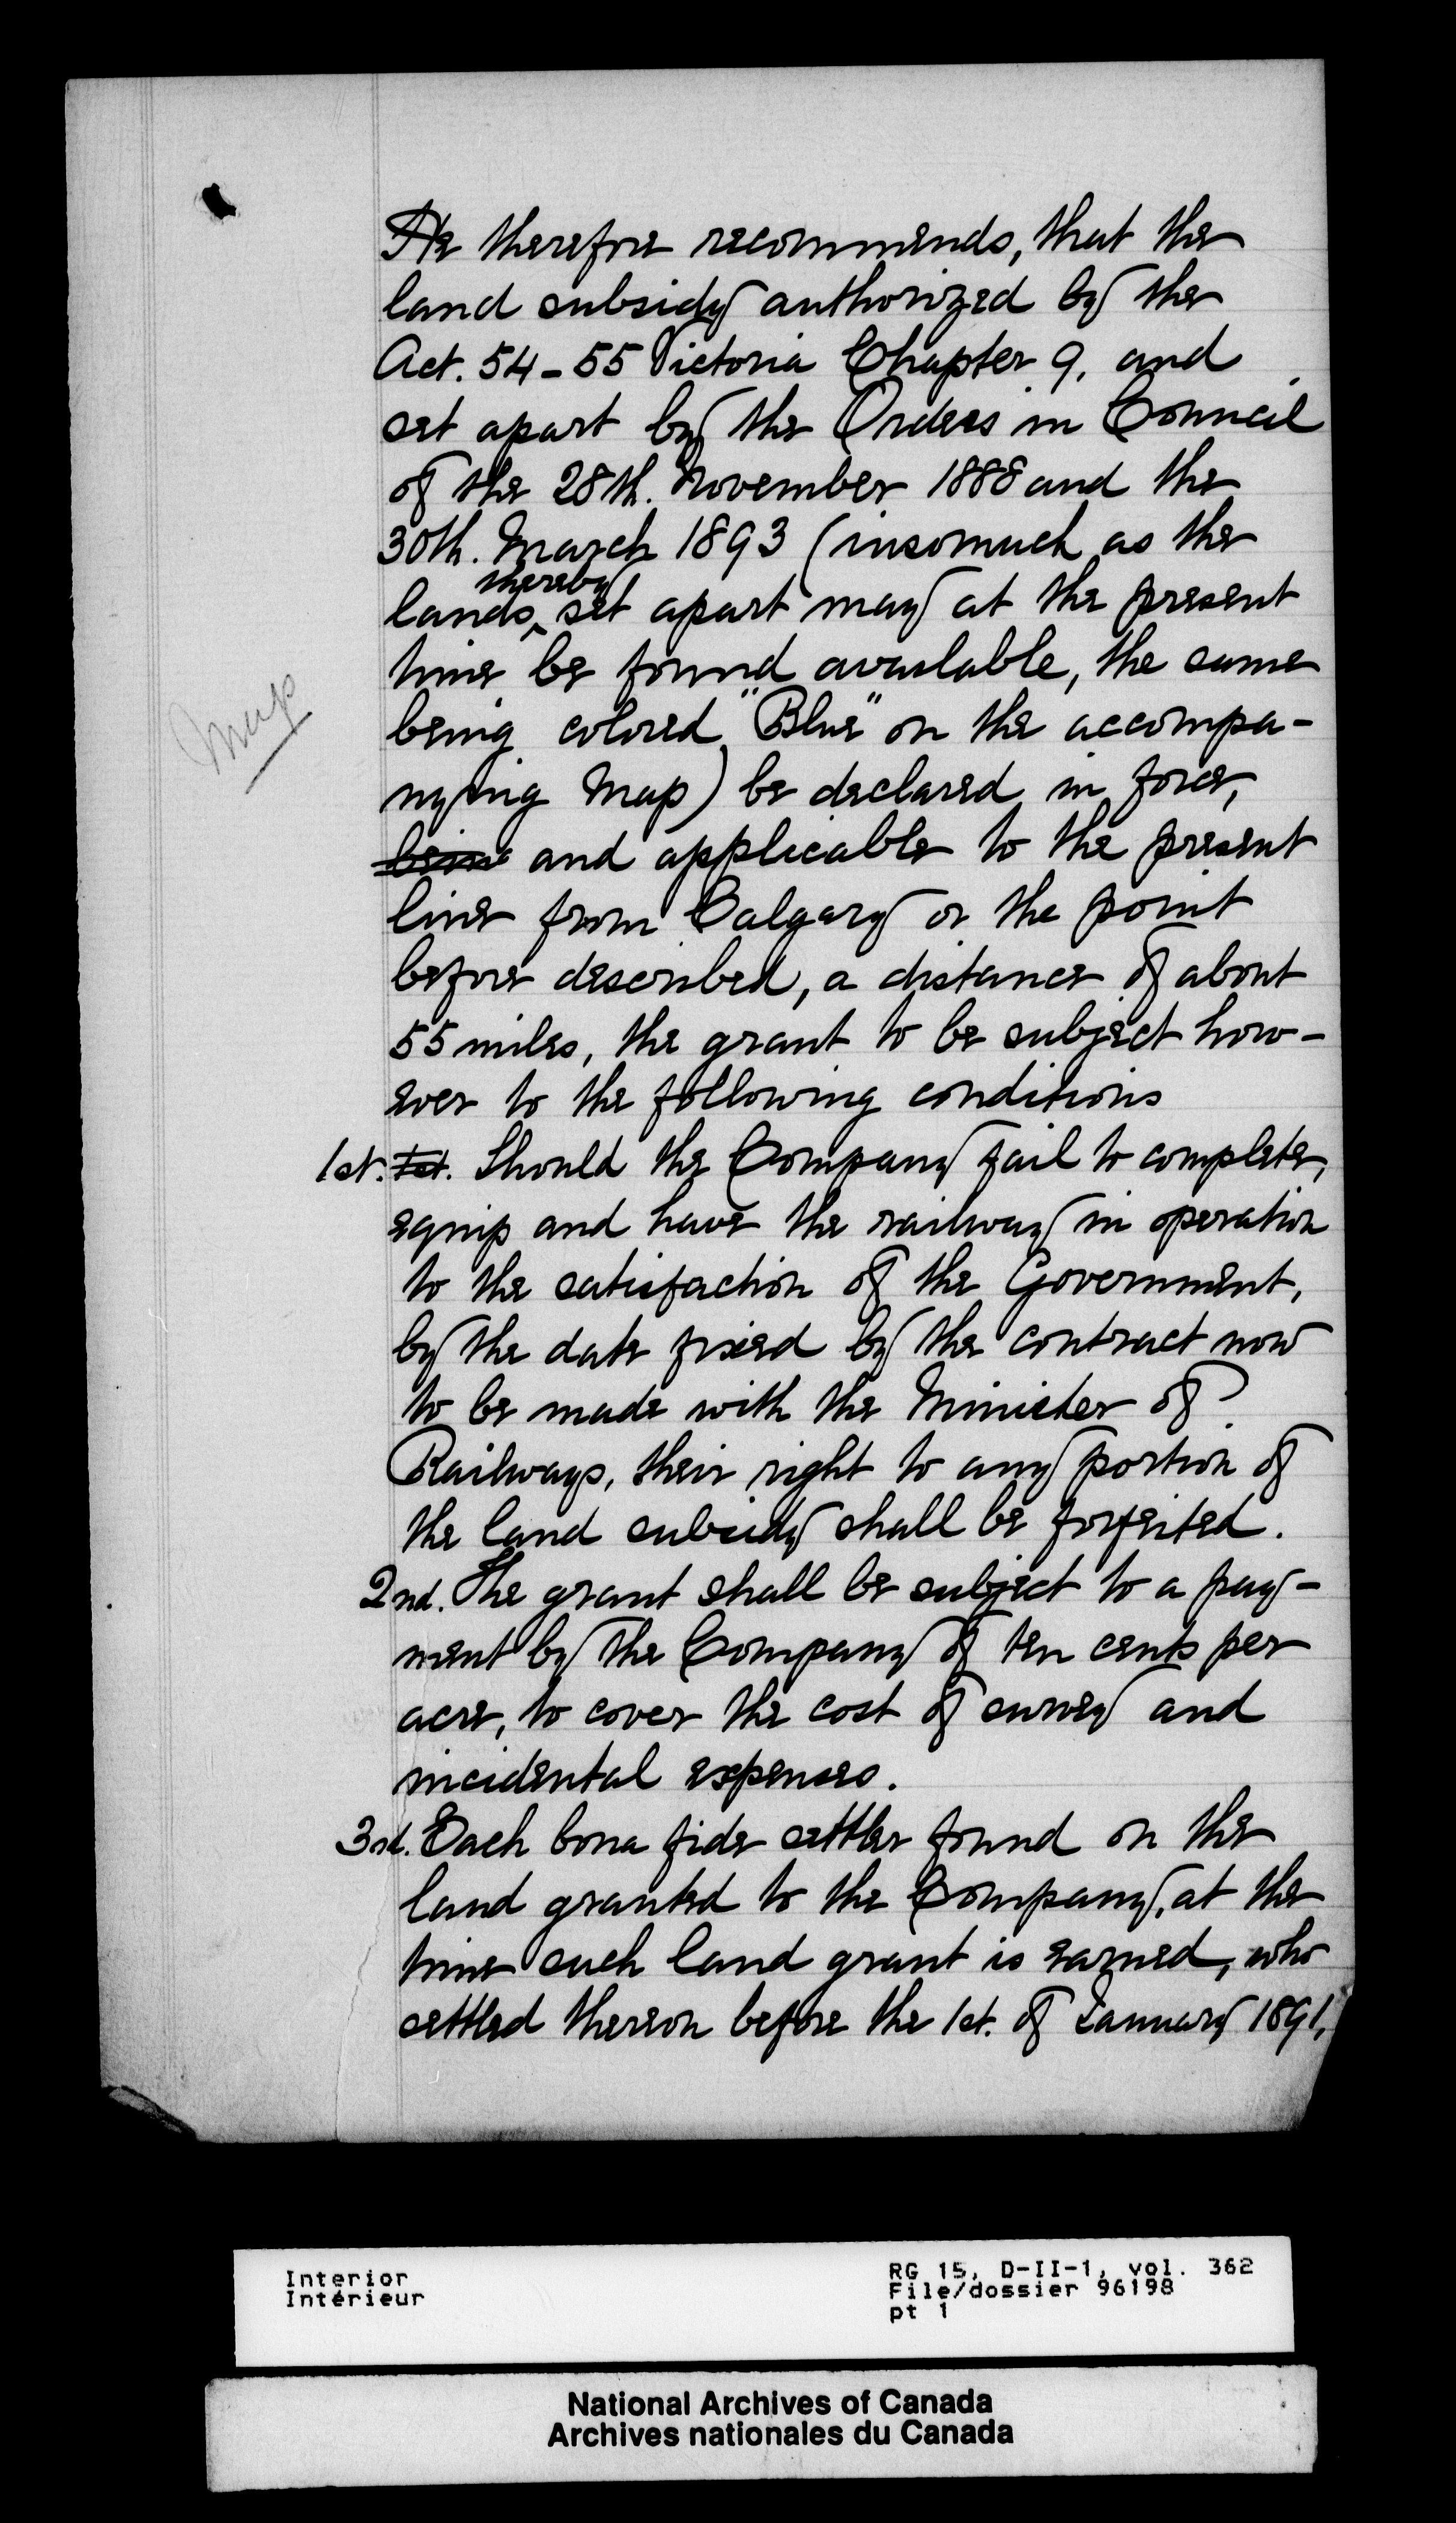 He therefore recommends, that the
land subsidy authorized by the
Act. 54-55 Victoria Chapter 9, and
set apart by the Orders in Council
of the 28th. November 1888 and the
30th. March 1893 (insomuch as the
thereby
lands ‸ set apart may at the present
time be found available, the same
being colored "Blue" on the accompa-
Map
nying Map) be declared in force,
being and applicable to the present
line from Calgary or the point
before described, a distance of about
55 miles, the grant to be subject how-
ever to the following conditions
1st. 1st. Should the Company fail to complete,
equip and have the railway in operation
to the satisfaction of the Government,
by the date fixed by the contract now
to be made with the Minister of
Railways, their right to any portion of
the land subsidy shall be forfeited.
2nd. The grant shall be subject to a pay-
ment by the Company of ten cents per
acre, to cover the cost of survey and
incidental expenses.
3rd. Each bona fide settler found on the
land granted to the Company, at the
time such land grant is earned, who
settled thereon before the 1st. of January 1891,
Interior
Intérieur
RG 15, D-II-1, vol. 362
File/dossier 96198
pt 1
National Archives of Canada
Archives nationales du Canada